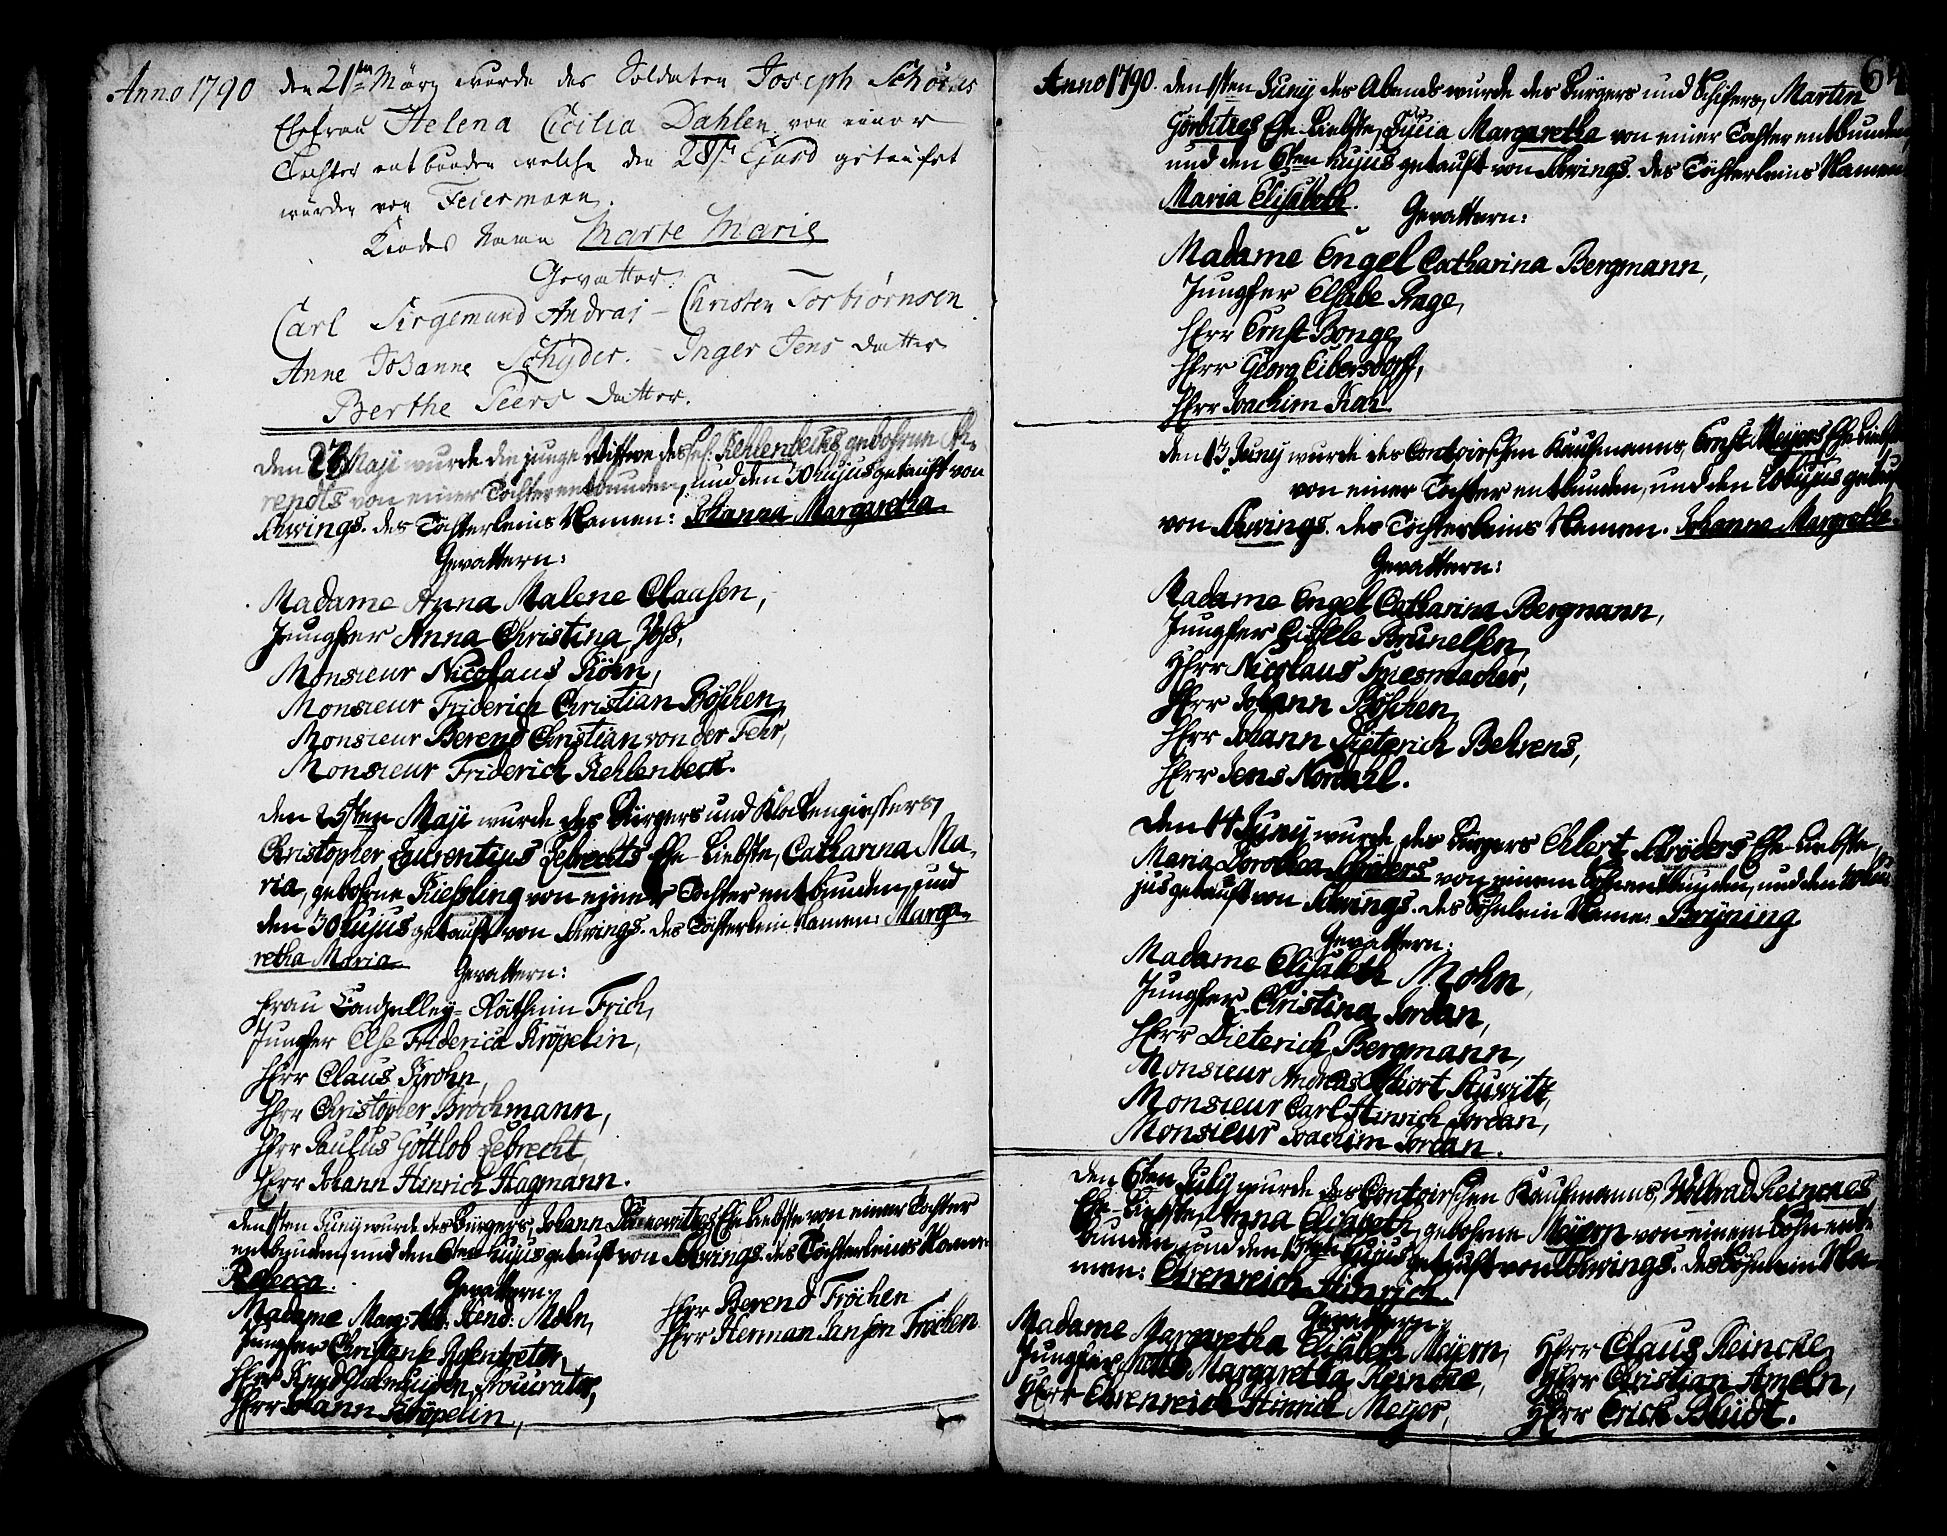 Anno 1790 den 21ten März wurde des Soldaten Joseph Schörs
Ehefrau Helena Cicilia Dahlen von einer
Tochter entbunden welche den 28ten Ejusd getauft
wurden von Feiermann.
Kindes Name Marte Marie
Gevatter:
Carl Sirgemund Andras – Christen Torbiørnsen
Anne Johanne Schyder. – Inger Jens datter
Berthe Peers datter.
den 23 Maji wurde die junge Wittwe des sel. Kehlenbecks gebohrne Ah-
rendts von einer Tochter entbunden, und den 30 hujus getauft von
Arwings. des Töchterleins Namen: Johanna Margaretha.
Gevattern:
Madame Anna Malene Claasen,
Jungfer Anna Christina Voss,
Monsieur Nicolaus Köhn,
Monsieur Friderich Christian Böschen,
Monsieur Berend Christian von der Fehr,
Monsieur Friderich Kehlenbeck.
den 25sten Maji wurde des Bürgers und Klockengiessers,
Christopher Laurentius Lebrechts Ehe-Liebste, Catharina Ma-
ria, gebohrne Kiessling von einer Tochter entbunden, und
den 30 hujus getauft von Arwings. des Töchterlein Namen: Marga-
retha Maria.
Gevattern:
Frau Cantzelley-Räthinn Frich,
Jungfer Else Friderica Kröpelin,
Herr Claus Krohn,
Herr Christopher Brochmann,
Herr Paulus Gottlob Lebrecht,
Herr Johann Hinrich Hagmann.
den 1sten Juny wurde des Bürgers, Johann Ehe-Liebste von einer Tochter
entbunden, und den 6ten hujus getauft von Arwings. des Töchterleins Name:
Rebecca.
Gevattern:
Madame Mohn,
Jungfer Christianse Rosentreter,
Herr Procurator,
Herr Johann Kröpelin,
Herr Berend Fröchen
Herr Herman Janson Fröchen
64
Anno 1790. den 1sten Juny des Abends wurde des Bürgers und Schifers, Martin
Görbitzes Ehe-Liebste, Lucia Margaretha von einer Tochter entbunden,
und den 6ten hujus getauft von Arwings. des Töchterleins Namen
Maria Elisabeth.
Gevattern:
Madame Engel Catharina Bergmann,
Jungfer Elsabe Prage,
Herr Ernst Bonge,
Herr Georg Eibersdorff,
Herr Joachim Kar.
den 13 Juny wurde des Contoirschen Kaufmanns, Ernst Meyers Ehe-Liebste
von einer Tochter entbunden, und den 20 hujus getauft
von Arwings. des Töchterleins Namen. Johanna Margreta.
Gevattern:
Madame Engel Catharina Bergmann,
Jungfer Giselle Brunelsen,
Herr Nicolaus Spiesmacher,
Herr Johann Böschen,
Herr Johann Dieterich Behrens,
Herr Jens Nordahl.
den 14 Juny wurde des Bürgers Ehlert Schröders Ehe-Liebste,
Maria Dorothea Schröders von einem Sohn entbunden, und den 20 hu-
jus getauft von Arwings. des Söhnlein Name: Brüning
Gevattern:
Madame Elisabeth Mohn,
Jungfer Christina Jordan,
Herr Dieterich Bergmann,
Monsieur Andreas Auwitt,
Monsieur Carl Hinrich Jordan,
Monsieur Joachim Jordan.
den 6ten July wurde des Contoirschen Kaufmanns, Wolbrad Reinckes
Ehe-Liebste, Anna Elisabeth, gebohrne Meyern von einem Sohn ent-
bunden, und den hujus getauft von Arwings. des Söhnlein Na-
men: Ehrenreich Hinrich.
Gevattern:
Madame Margaretha Elisabeth Meyern,
Jungfer Margaretha Reincke,
Herr Ehrenreich Hinrich Meyer,
Herr Claus Reincke,
Herr Christian Ameln,
Herr Erick Blüdt.